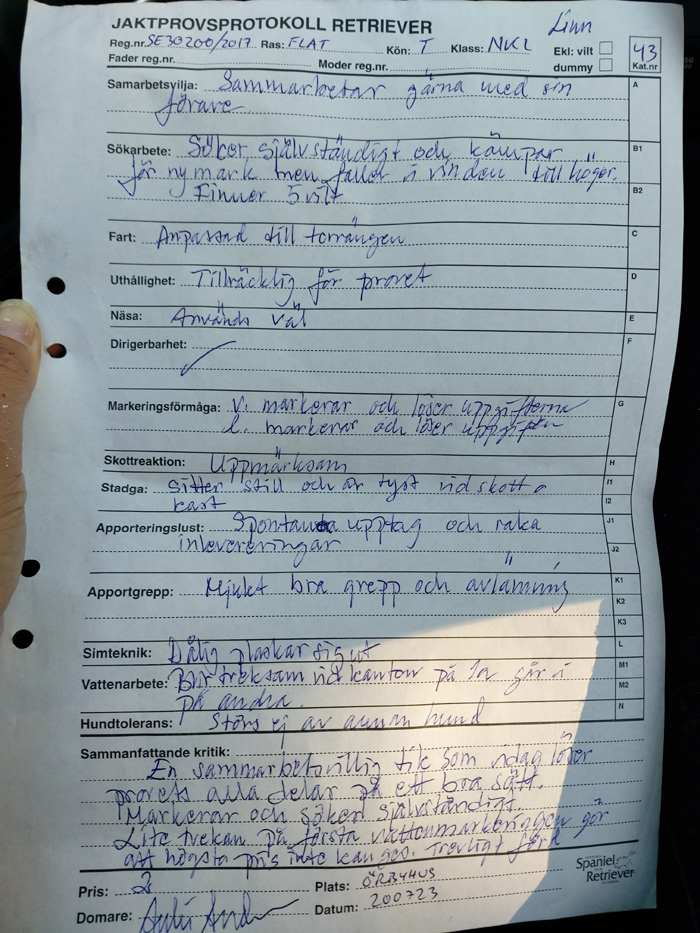 JAKTPROVSPROTOKOLL RETRIEVER
Linn
Reg.nr. SE30200/2017 Ras: FLAT Kön: T Klass: NKL Ekl: vilt 43
Fader reg.nr. Moder reg.nr. dummy Kat.nr
Samarbetsvilja: Sammarbetar gärna med sin A
förare
Sökarbete: Söker självständigt och kämpar B1
för ny mark men faller i vinden till höger.
Finner 5 vilt B2
Fart: Anpassad till terrängen C
Uthållighet: Tillräcklig för provet D
Näsa: Används väl E
Dirigerbarhet: F
Markeringsförmåga: V. markerar och löser uppgifterna G
L. markerar och löser uppgiften
Skottreaktion: Uppmärksam H
Stadga: Sitter still och är tyst vid skott o I1
kast I2
Apporteringslust: Spontana upptag och raka J1
inlevereringar J2
Apportgrepp: Mjukt bra grepp och avlämning K1
K2
K3
Simteknik: Dålig plaskar sig ut L
Vattenarbete: Blir treksam vid kanten på 1a går i M1
på andra. M2
Hundtolerans: Störs ej av annan hund N
Sammanfattande kritik:
En sammarbetsvillig tik som idag löser
provets alla delar på ett bra sätt.
Markerar och söker självständigt.
Lite tvekan på första vattenmarkeringen gör
att högsta pris inte kan ges. Trevligt förd
Pris: 2 Plats: ÖRBYHUS
Domare: Datum: 200723
Spaniel
Retriever